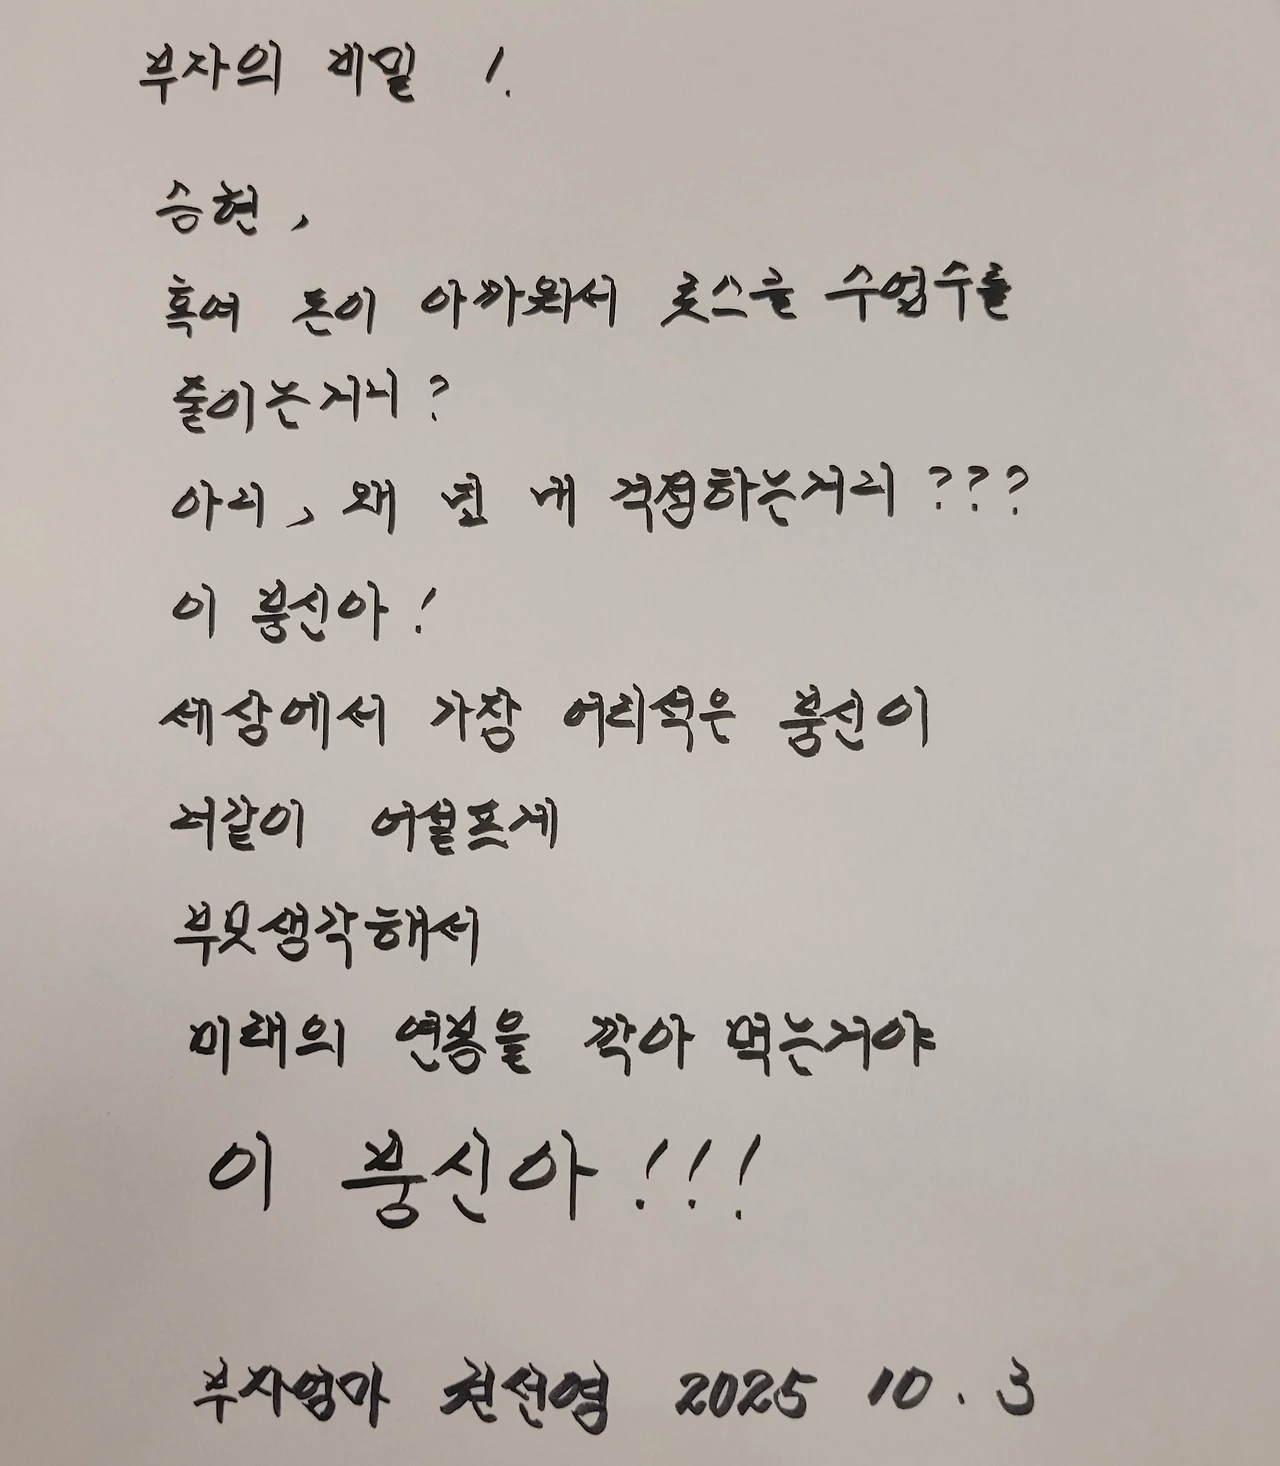 부자의 비밀 1.
승현,
혹여 돈이 아까와서 로스쿨 수업수를
줄이는거니?
아니, 왜 넌 내 걱정하는거니???
이 붕신아!
세상에서 가장 어리석은 붕신이
너같이 어설프게
부모생각해서
미래의 연봉을 깍아 먹는거야
이 붕신아!!!
부자엄마 권선영 2025 10. 3